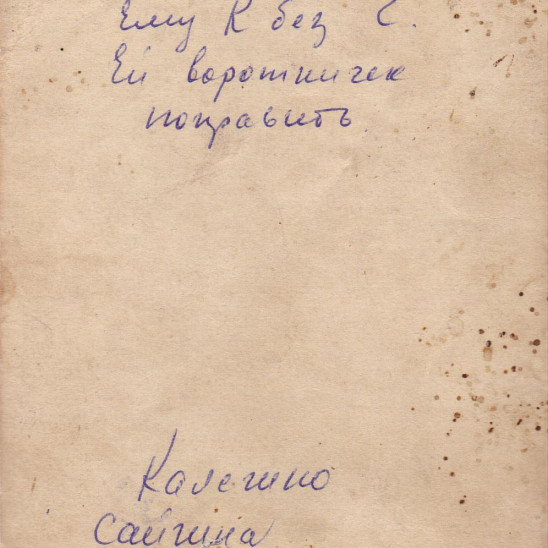 Ему К без С.
Ей воротничек
поправить
Калегино
Сайгина